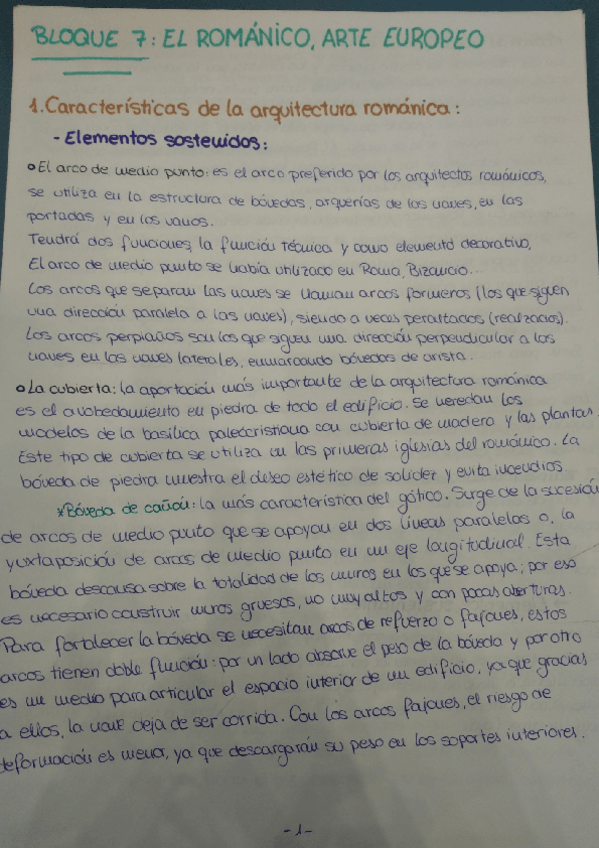 BLOQUE 7: EL ROMÁNICO, ARTE EUROPEO
1. Características de la arquitectura románica:
- Elementos sostenidos:
o El arco de medio punto: es el arco preferido por los arquitectos románicos,
se utiliza en la estructura de bóvedas, arquerías de las naves, en las
portadas y en los vanos.
Tendrá dos funciones, la función técnica y como elemento decorativo,
El arco de medio punto se había utilizado en Roma, Bizancio...
Los arcos que separan las naves se llaman arcos formeros (los que siguen
una dirección paralela a las naves), siendo a veces peraltados (realzados).
Los arcos perpiaños son los que siguen una dirección perpendicular a las
naves en las naves laterales, enmarcando bóvedas de arista.
o La cubierta: la aportación más importante de la arquitectura románica
es el avobedamiento en piedra de todo el edificio. Se heredan los
modelos de la basílica paleocristiana con cubierta de madera y las plantas.
Este tipo de cubierta se utiliza en las primeras iglesias del románico. La
bóveda de piedra muestra el deseo estético de solidez y evita incendios
*Bóveda de cañón: la más característica del gótico. Surge de la sucesión
de arcos de medio punto que se apoyan en dos líneas paralelas o, la
yuxtaposición de arcos de medio punto en un eje longitudinal. Esta
bóveda descansa sobre la totalidad de los muros en los que se apoya; por eso
es necesario construir muros gruesos, no muy altos y con pocas aberturas.
Para fortalecer la bóveda se necesitan arcos de refuerzo o fajones, estos
arcos tienen doble función: por un lado absorve el peso de la bóveda y por otro
es un medio para articular el espacio interior de un edificio, ya que gracias
a ellos, la nave deja de ser corrida. Con los arcos fajones, el riesgo de
deformación es menor, ya que descargarán su peso en los soportes interiores.
- 1 -